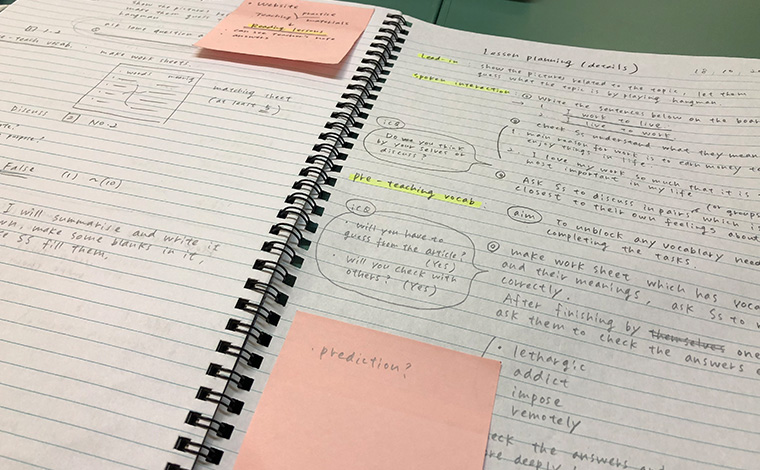 show the pictures
make them guess
hangman
ask some question
-Teach vocab.
make work sheets.
word meaning
matching sheet
(at least 5)
Discuss
No.2
purpose?
False (1) ~ (10)
I will summarise and write it
make some blanks in it,
SS fill them,
• Website
Teaching practice
materials
Reading lessons
• can see
answers
Lesson planning (details)
18, 10, 20
Lead-in
show the pictures related to the topic, let them
guess what the topic is by playing hangman.
spoken interaction
Write the sentences below on the boar
1. I work to live
I live to work
check Ss understand what they mean
1. main reason for work is to earn money to
enjoy things in life
2. I love my work so much that it is
most important in my life
ICQ
Do you think
by your selves or
discuss?
Ask Ss to discuss in pairs (or groups
which is
closest to their own feelings about
pre-teaching vocab
aim
To unblock any vocablary need
completing the tasks.
ICQ
• will you have to
guess from the article?
(Yes)
• will you check with
others? (Yes)
make work sheet which has voca
and their meanings, ask Ss to
correctly.
After finishing by themselves one
ask them to check the answers
• lethargic
addict
impose
remotely
eck the answers and
re deeply
• prediction?